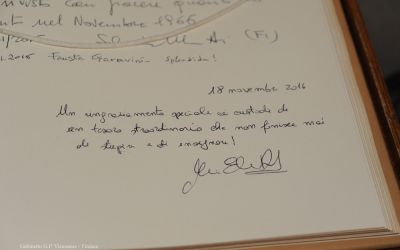 visto con piacere quanto
nel Novembre 1966
(FI)
2016 Fausta Garavini splendida!
18 novembre 2016
Un ringraziamento speciale ai custodi di
un tesoro straordinario che non finisce mai
di stupire e di insegnare!
Gabinetto G.P. Vieusseux - Firenze